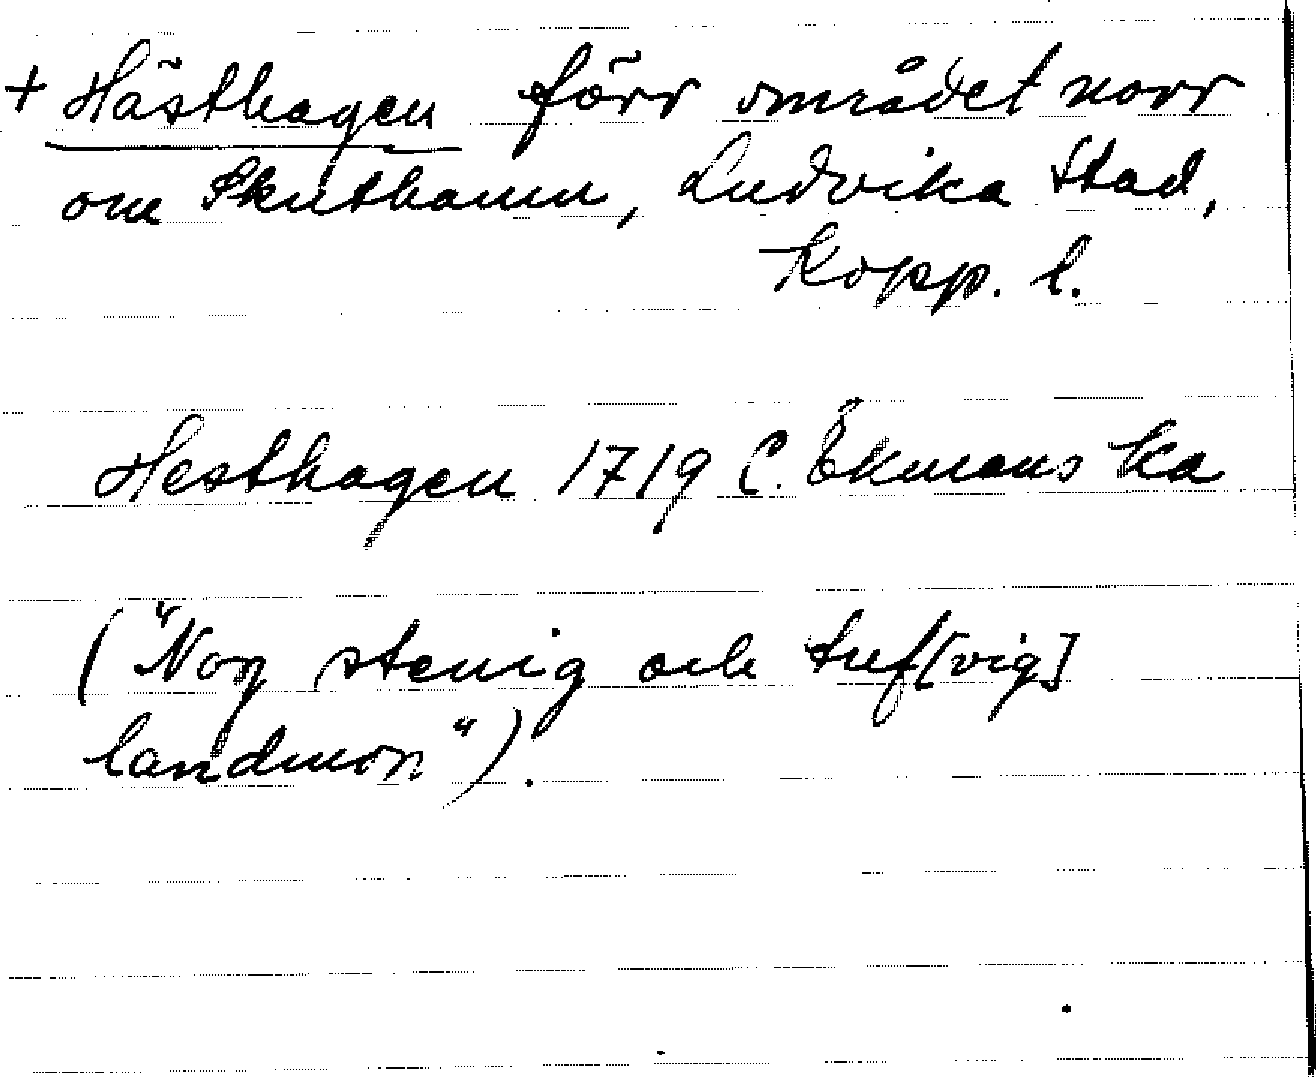 + Hästhagen förr området norr
om Skuthamn, Ludvika Stad,
Kopp. l.
Hesthagen 1719 C. Ekmans ka
("Nog stenig och tuf[vig]
landmon").